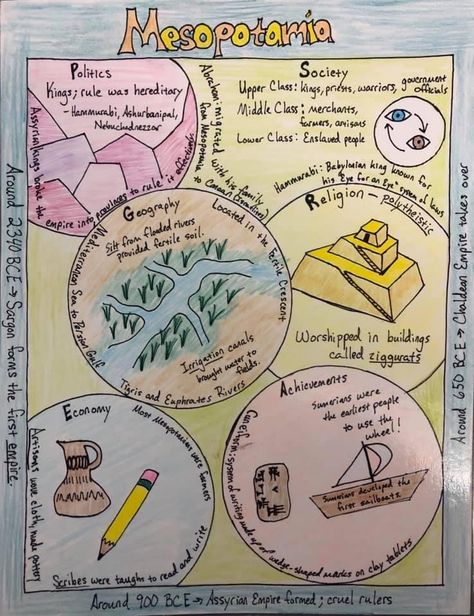 Mesopotamia
Politics
Kings; rule was hereditary
- Hammurabi, Ashurbanipal,
Nebuchadnezzar
Assyrian kings broke the
empire into provinces to rule it effectively
Abraham: migrated with his family
from Mesopotamia to Canaan (Israelites)
Society
Upper Class: kings, priests, warriors, government
officials
Middle Class: merchants,
farmers, artisans
Lower Class: Enslaved people
Hammurabi: Babylonian king known for
his "Eye for an Eye" system of laws
Geography
Silt from flooded rivers
provided fertile soil.
Located in the Fertile Crescent
Mediterranean Sea to Persian Gulf
Irrigation canals
brought water to
fields.
Tigris and Euphrates Rivers
Religion - polytheistic
Worshipped in buildings
called ziggurats
Economy
Most Mesopotamians were farmers
Artisans wove cloth, made pottery
Scribes were taught to read and write
Achievements
Sumerians were
the earliest people
to use the
wheel!
Sumerians developed the
first sailboats.
Cuneiform: system of writing made up of wedge-shaped markers on clay tablets.
Around 2340 BCE → Sargon forms the first empire.
Around 650 BCE → Chaldean Empire takes over
Around 900 BCE → Assyrian Empire formed; cruel rulers